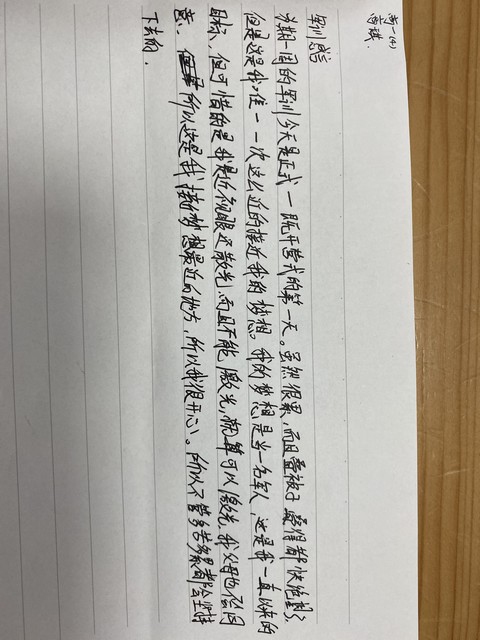 高一(4)
高琪.
军训感言
为期一周的军训今天是正式一既开营式的第一天。虽然很累,而且叠被子 蹲得都快绝望了
但是这是我唯一一次这么近的接近我的梦想。我的梦想是当一名军人,这是我一直以来的
目标、但可惜的是我是近视眼还散光,而且不能激光,就算可以激光,我父母也不会同
意、所以这是我接近梦想最近的地方,所以我很开心。所以不管多苦多累都会坚持
下去的.